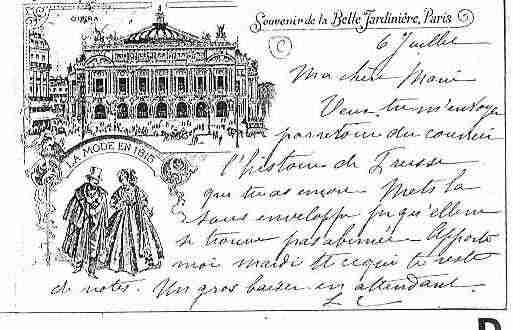 OPERA
Souvenir de la Belle Jardinière, Paris
C
6 Juillet
Ma chère Marie
Veux tu m'envoyer
par retour du courrier
l'histoire de
que tu as encore Mets la
sous enveloppe qu'elle ne
se trouve pas abimée - Apporte
moi mardi et ce qui te reste
de notes. Un gros baiser en attendant
LA MODE EN 1815